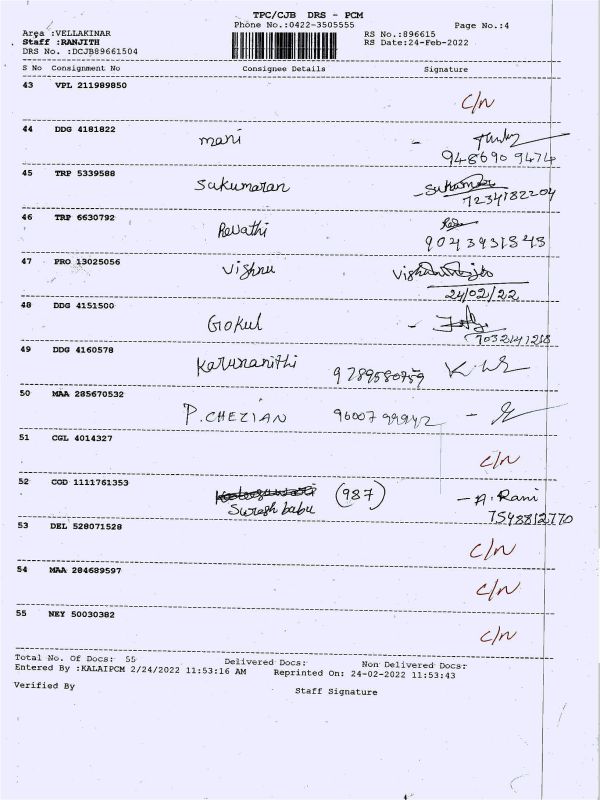 TPC/CJB DRS - PCM
Phone No.:0422-3505555 Page No.:4
Area :VELLAKINAR RS No.:896615
Staff :RANJITH RS Date:24-Feb-2022
DRS No. :DCJB89661504
S No Consignment No Consignee Details Signature
43 VPL 211989850
C/N
44 DDG 4181822
mani -
948690 9474
45 TRP 5339588
Sukumaran - Sukumar
7234182204
46 TRP 6630792
Revathi
9043931543
47 PRO 13025056
Vishnu
24/02/22
48 DDG 4151500
Gokul -
7032141218
49 DDG 4160578
Karunanithi 9789580759
50 MAA 285670532
P.CHEZIAN 96007 99942 -
51 CGL 4014327
C/N
52 COD 1111761353
(987) - A. Rani
Suresh babu 7548812770
53 DEL 528071528
C/N
54 MAA 284689597
C/N
55 NEY 50030382
C/N
Total No. Of Docs: 55 Delivered Docs: Non Delivered Docs:
Entered By :KALAIPCM 2/24/2022 11:53:16 AM Reprinted On: 24-02-2022 11:53:43
Verified By Staff Signature